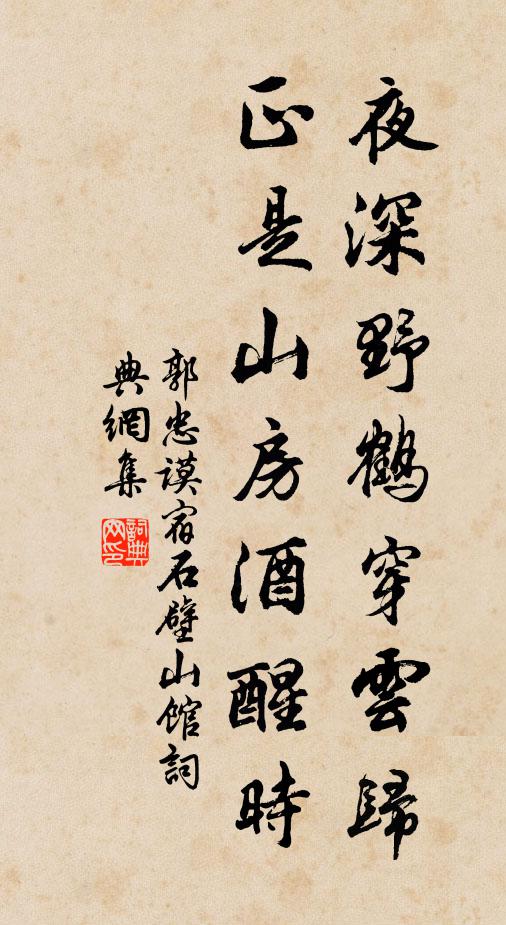 夜深野鶴穿雲歸
正是山房酒醒時
郭忠謨宿石壁山館詞
典網集
詞典網印